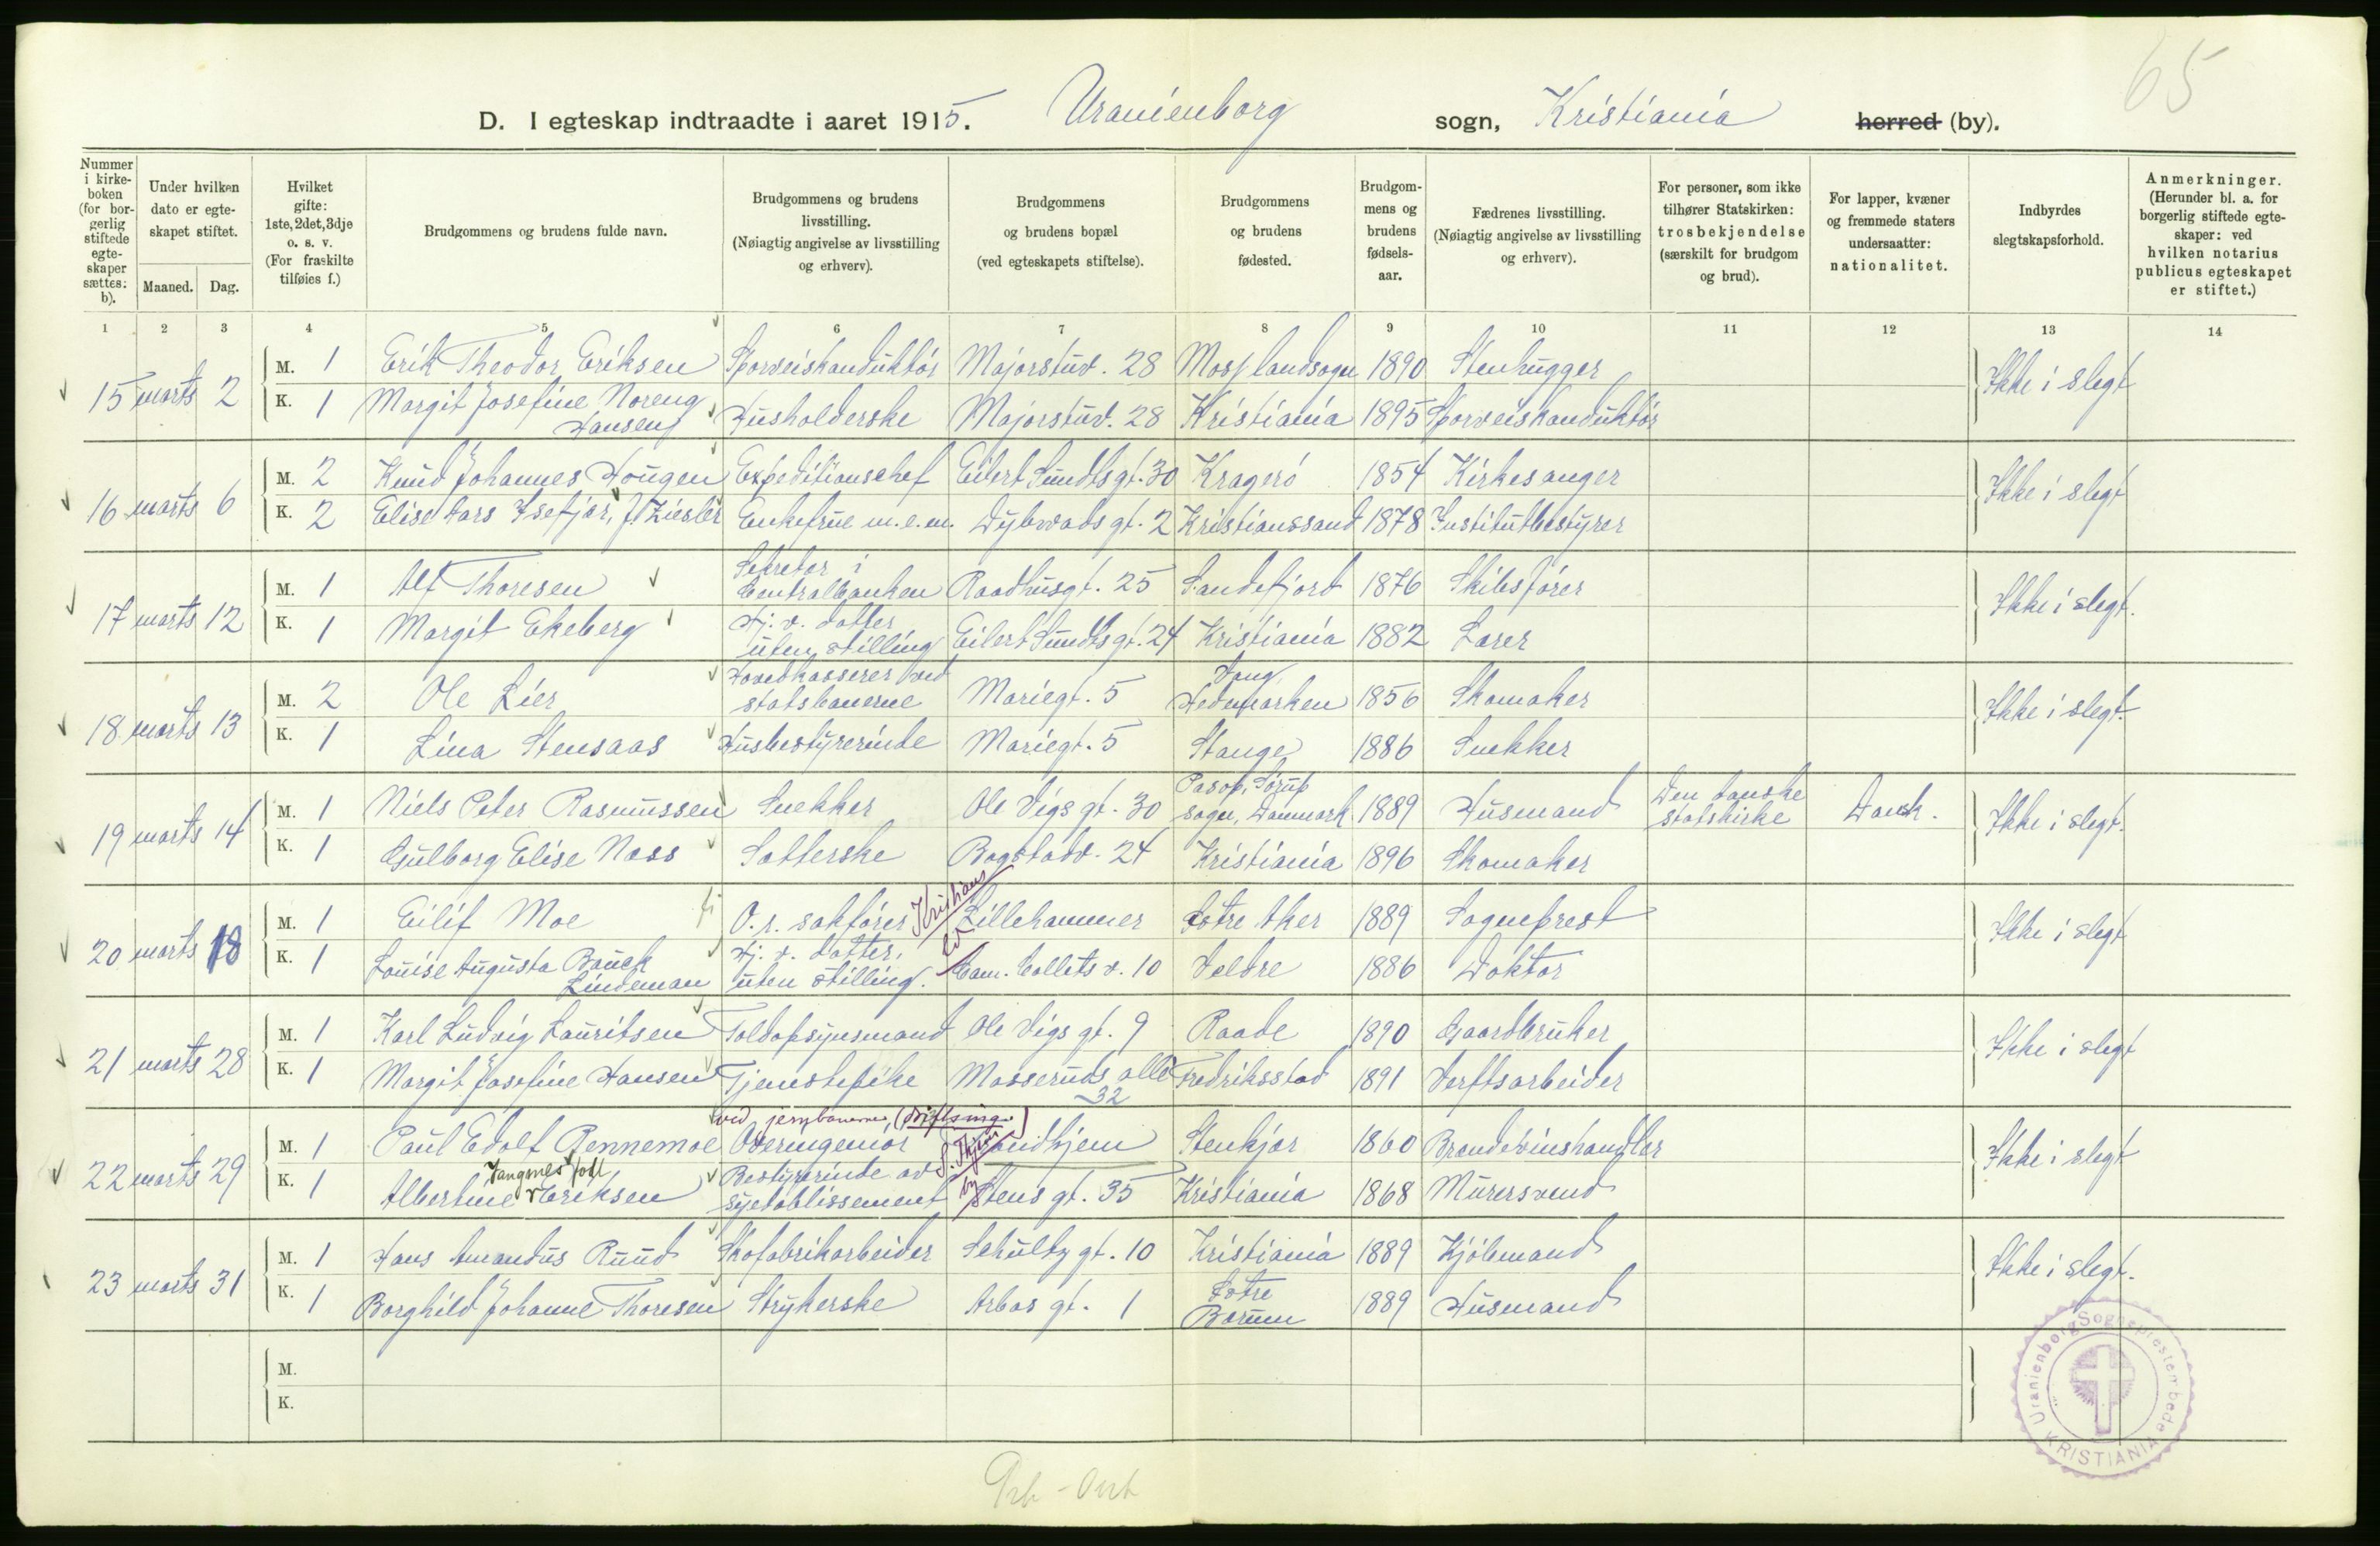 65
D. I egteskap indtraadte i aaret 1915. Uranienborg sogn, Kristiania herred (by).
Nummer i kirkeboken (for borgerlig stiftede egteskaper sættes: b).
Under hvilken dato er egteskapet stiftet.
Maaned. Dag.
Hvilket gifte: 1ste, 2det, 3dje o. s. v. (For fraskilte tilføies f.)
Brudgommens og brudens fulde navn.
Brudgommens og brudens livsstilling. (Nøiagtig angivelse av livsstilling og erhverv).
Brudgommens og brudens bopæl (ved egteskapets stiftelse).
Brudgommens og brudens fødested.
Brudgommens og brudens fødselsaar.
Fædrenes livsstilling. (Nøiagtig angivelse av livsstilling og erhverv).
For personer, som ikke tilhører Statskirken: trosbekjendelse (særskilt for brudgom og brud).
For lapper, kvæner og fremmede staters undersaatter: nationalitet.
Indbyrdes slegtskapsforhold.
Anmerkninger. (Herunder bl. a. for borgerlig stiftede egteskaper: ved hvilken notarius publicus egteskapet er stiftet.)
1 2 3 4 5 6 7 8 9 10 11 12 13 14
15 marts 2 M. 1 Erik Theodor Eriksen Sporveiskonduktör Majorstuv. 28 Moss landsogn 1890 Stenhugger Ikke i slegt
K. 1 Margit Josefine Noreng Hansen Husholderske Majorstuv. 28 Kristiania 1895 Sporveiskonduktör
16 marts 6 M. 2 Knud Johannes Hougen Expeditionschef Eilert Sundts gt. 30 Kragerö 1854 Kirkesanger Ikke i slegt
K. 2 Elise Lars Isefjær, f. Ziesler Enkefrue m. e. m. Dybwads gt. 2 Kristianssand 1878 Institutbestyrer
17 marts 12 M. 1 Alf Thoresen Sekretær i Centralbanken Raadhusgt. 25 Sandefjord 1876 Skibsförer Ikke i slegt.
K. 1 Margit Ekeberg Hj. v. datter uten stilling Eilert Sundts gt. 24 Kristiania 1882 Lærer
18 marts 13 M. 2 Ole Lier Hovedkasserer ved statsbanerne Mariegt. 5 Vang Hedemarken 1856 Skomaker Ikke i slegt.
K. 1 Lina Stensaas Husbestyrerinde Mariegt. 5 Stange 1886 Snekker
19 marts 14 M. 1 Niels Peter Rasmussen Snekker Ole Vigs gt. 30 Pasop, Sørup sogn, Danmark 1889 Husmand Den danske statskirke Dansk. Ikke i slegt.
K. 1 Gulborg Elise Næss Sætterske Bogstadv. 24 Kristiania 1896 Skomaker
20 marts 18 M. 1 Eilif Moe O. r. sakförer Kristians Lillehammer Østre Aker 1889 Sogneprest Ikke i slegt
K. 1 Louise Augusta Bauck Lindeman Hj. v. datter, uten stilling. Cam. Colletts v. 10 Veldre 1886 Doktor
21 marts 28 M. 1 Karl Ludvig Lauritsen Toldopsynsmand Ole Vigs gt. 9 Raade 1890 Gaardbruker Ikke i slegt
K. 1 Margit Josefine Hansen Tjenestepike Monseruds allé 32 Fredriksstad 1891 Verftsarbeider
22 marts 29 M. 1 Paul Edolf Rennemoe Overingeniör ved jernbanerne, (driftsing.) S. Trhjem by Trondhjem Stenkjær 1860 Brændevinshandler Ikke i slegt
K. 1 Albertine Vangsnes født Eriksen Bestyrerinde av syetablissement Stens gt. 35 Kristiania 1868 Murersvend
23 marts 31 M. 1 Hans Amandus Ruud Skofabrikarbeider Schultz gt. 10 Kristiania 1889 Kjölemand Ikke i slegt.
K. 1 Borghild Johanne Thoresen Strykerske Arbos gt. 1 Østre Bærum 1889 Husmand
M.
K.
Uranienborg Sogneprestembede KRISTIANIA